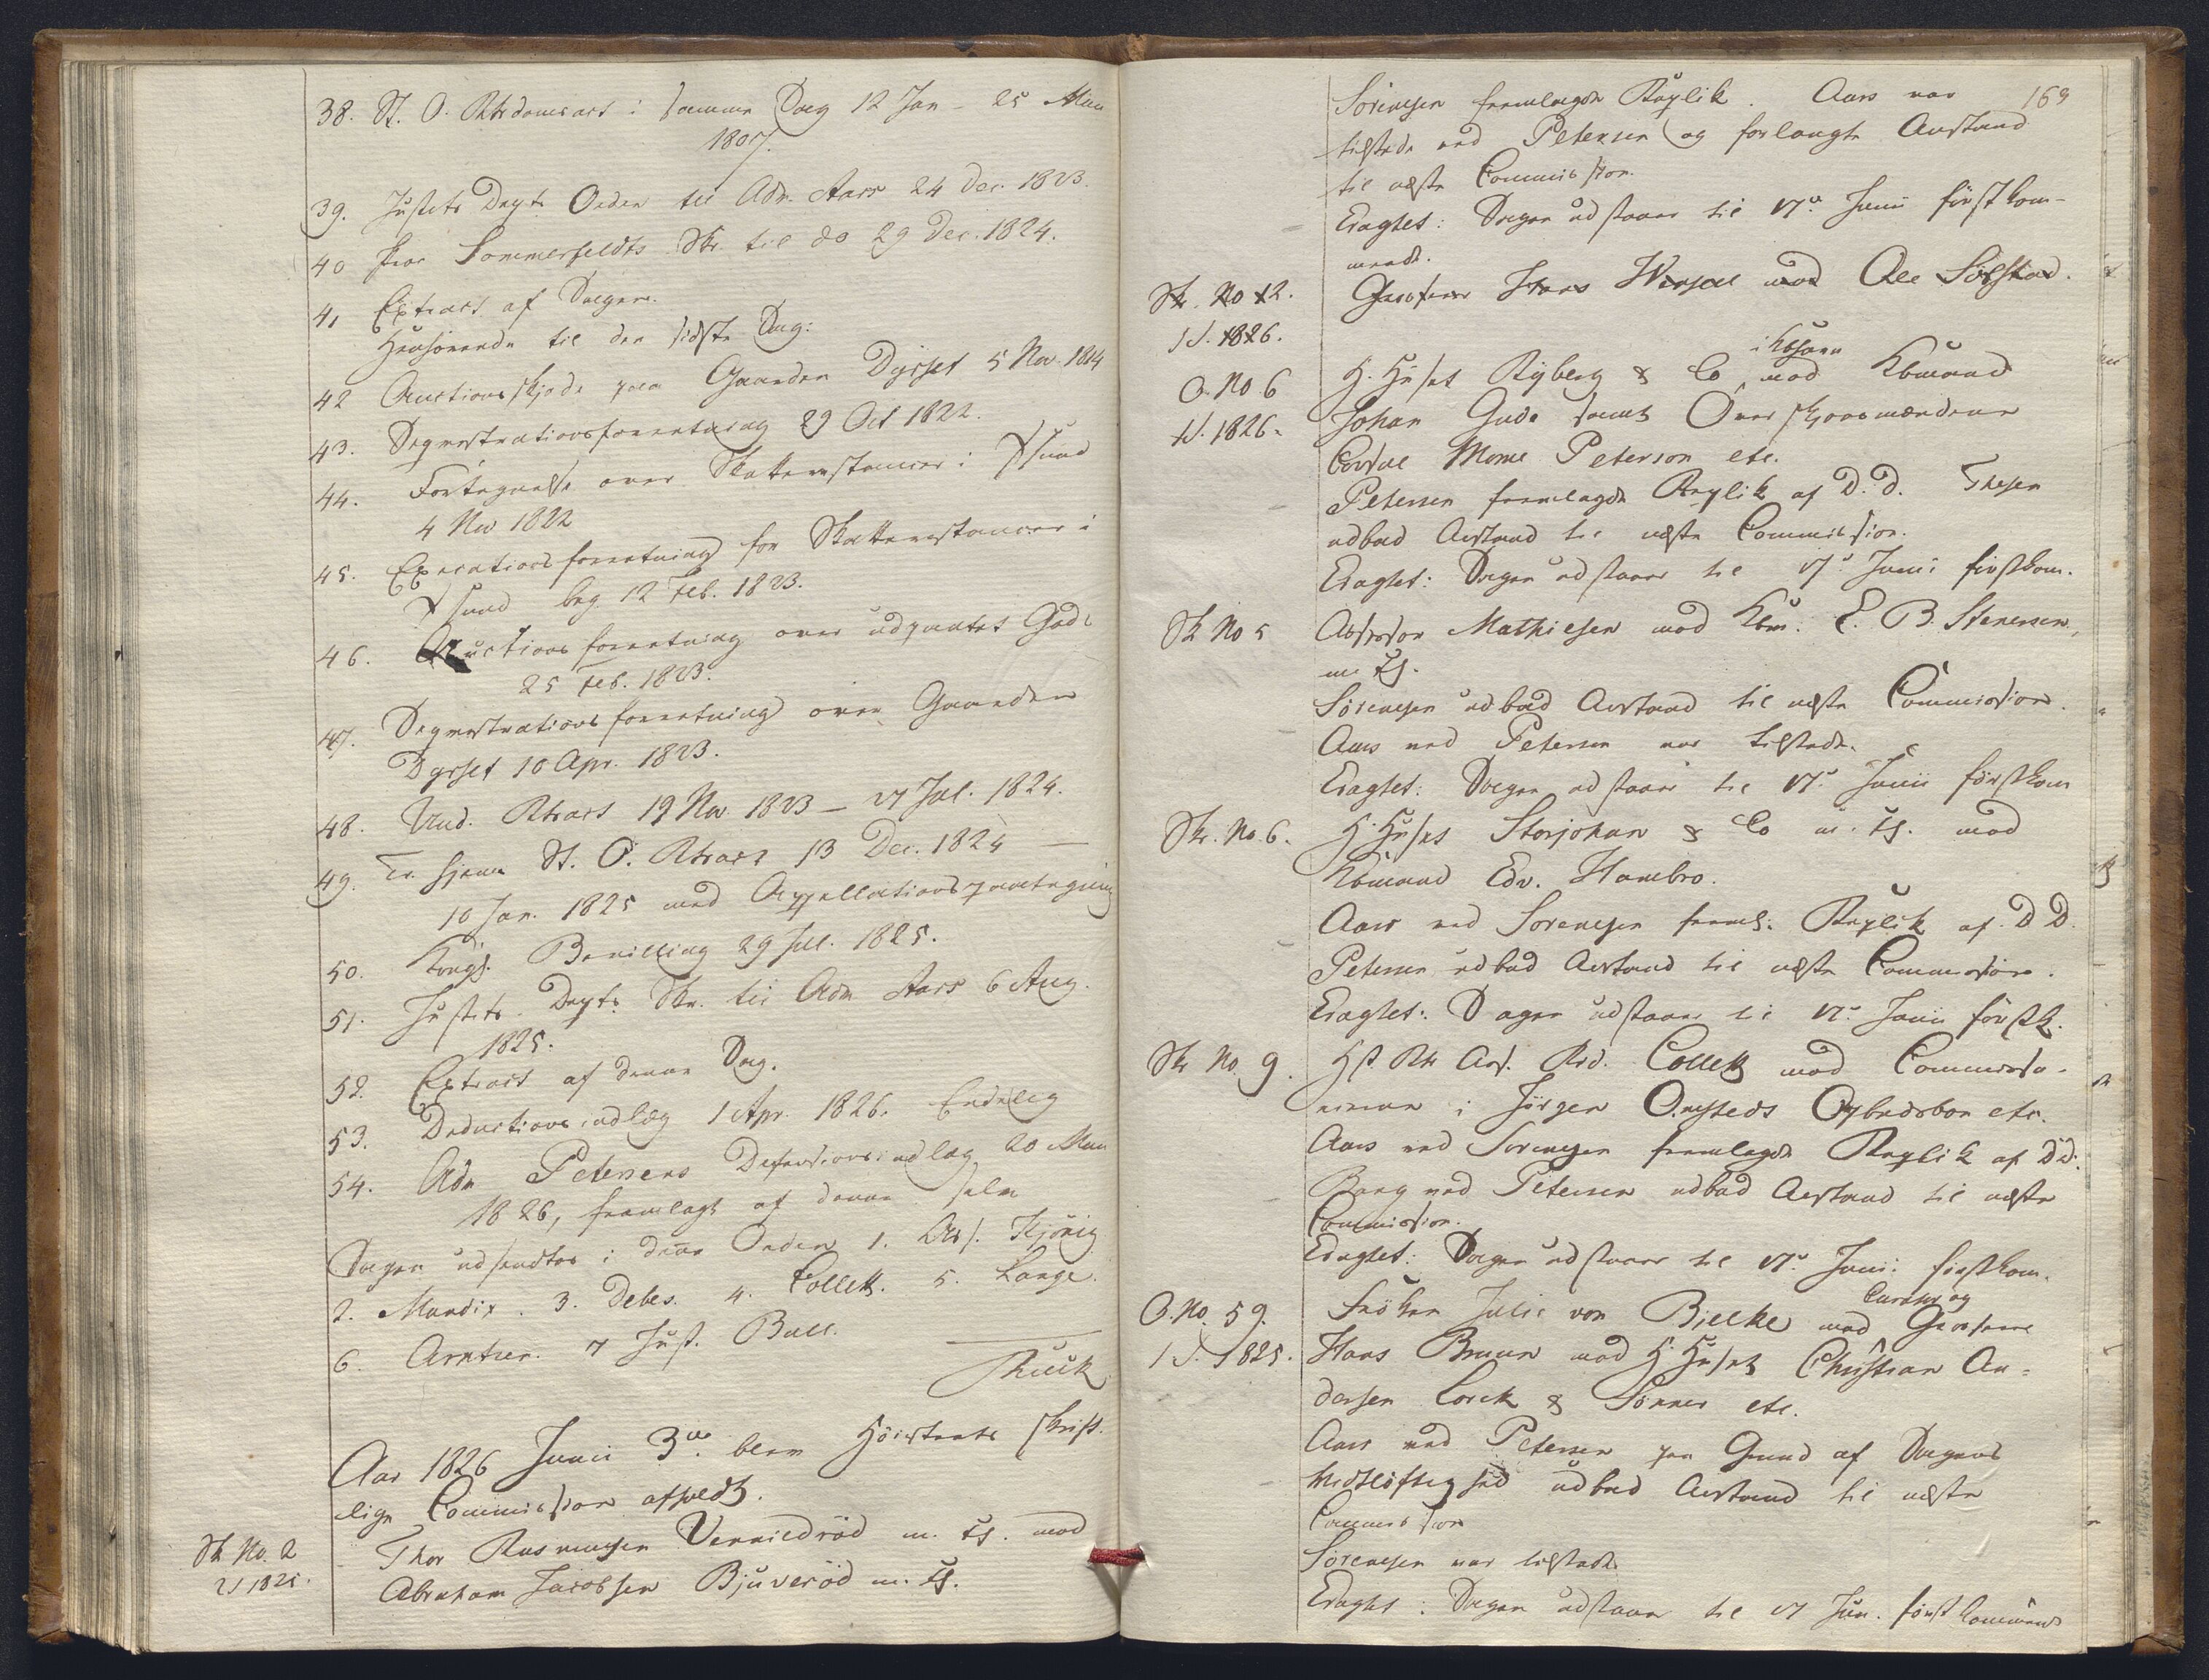 38. St. O. Rtsdomsact i samme Sag 12 Jan - 25 Mai
1807.
39. Justits Depts Orden til Adv. Aars 24 Dec. 1823.
40 Pror Sommerfeldts Skr. til do 29 Dec. 1824.
41 Extract af Sagen.
Henhörende til den sidste Sag:
42 Auctionsskjöde paa Gaarden Dyrset 5 Nov. 1814
43. Seqvestrationsforretning 29 Oct 1822.
44. Fortegnelse over Skatterestancer i
4 Nov 1822
45. Executionsforretning for Skatterestancer i
beg. 12 Feb. 1823.
46. Auctionsforretning over udpantet Gods
25 Feb. 1823.
47. Seqvestrationsforretning over Gaarden
Dyrset 10 Apr. 1823.
48. Und. Rtsact 19 Nov. 1823 - 27 Jul. 1824.
49. St. O. Rtsact 13 Dec. 1824 -
10 Jan. 1825 med Appellationspaategning
50. Kongl. Bevilling 29 Jul. 1825.
51. Justits Depts Skr. til Adv Aars 6 Aug.
1825.
52. Extract af denne Sag.
53. Deductionsindlæg 1 Apr. 1826. Endelig
54. Adv Petersens Defensionsindlæg 20 Mai
1826, fremlagt af denne selv
Sagen udsendtes i denne Orden 1. Ass. Kjönig
2. Mandix. 3. Debes. 4. Collett. 5. Lange.
6. Arntzen. 7 Just. Bull.
Rieck
Aar 1826 Junii 3die blev Höiesterets skrift-
lige Commission afholdt.
Sk No. 2
21 1825.
Thor Rasmussen Vennildröd m. fl. mod
Abraham Jacobsen Bjuveröd m. fl.
169
Sörensen fremlagde Replik. Aars var
tilstede ved Petersen og forlangte Anstand
til næste Commission.
Eragtet: Sagen udstaaer til 17de Junii förstkom-
mende.
Sk. No 12.
1 S. 1826.
Grosserer Hans Wensell mod Ole Sölstad.
O. No 6
1 S. 1826.
H. Huset Ryberg & Co i Kbhavn mod Kbmand
Johan Gude samt Overskjönsmændene
Consul Morne Peterson etc.
Petersen fremlagde Replik af D.d. Thesen
udbad Anstand til næste Commission.
Eragtet: Sagen udstaaer til 17de Junii förstkom.
Sk No 5
Assessor Mathiesen mod Kbm. E. B. Stenersen
m fl.
Sörensen udbad Anstand til næste Commission.
Aars ved Petersen var tilstede.
Eragtet: Sagen udstaaer til 17de Junii förstkom
Sk. No. 6.
H. Huset Storjohan & Co m. fl. mod
Kbmand Edv. Hambro.
Aars ved Sörensen freml. Replik af D D.
Petersen udbad Anstand til næste Commission.
Eragtet: Sagen udstaaer til 17de Junii förstk.
Sk No. 9.
Hst Rts Ass. Collett mod Commissa-
rierne i Jörgen Omsteds Opbudsbo etc.
Aars ved Sörensen fremlagde Replik af D.d.
Bang ved Petersen udbad Anstand til næste
Commission.
Eragtet: Sagen udstaaer til 17de Junii förstkom.
O. No. 59.
1 S. 1825.
Fröken Julie von Bielke med Curator og Grosserer
Hans Bruun mod H Huset Christian An-
dersen Lorck & Sönner etc.
Aars ved Petersen paa Grund af Sagens
Vidtlöftighed udbad Anstand til næste
Commission
Sörensen var tilstede.
Eragtet: Sagen udstaaer til 17 Jun. förstkommend